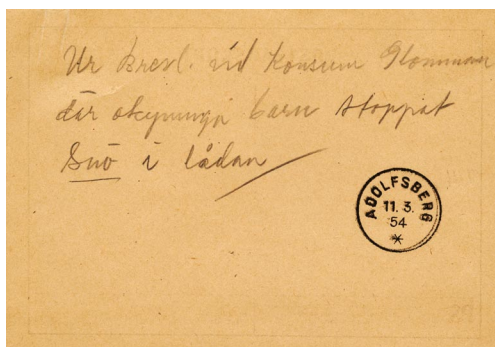 Ur brevl. vid Konsum Glomman
där okynniga barn stoppat
Snö i lådan
ADOLFSBERG
11. 3.
54